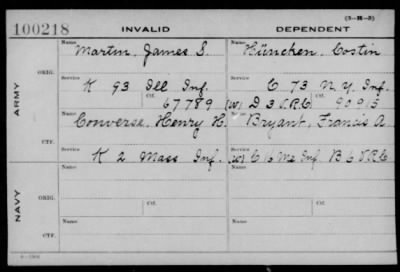 (3-M-3)
100218 INVALID DEPENDENT
ARMY
ORIG.
Name Name
Martin, James S. Hünchen, Costin
Service Service
K 93 Ill Inf. C 73 N.Y. Inf.
Ctf. Ctf.
67789 (W) D 3 V.R.C. 90915
CTF.
Name Name
Converse, Henry H. Bryant, Francis A.
Service Service
K 2 Mass Inf. (W) C 16 Me Inf. B 6 V.R.C.
NAVY
ORIG.
Name Name
Service Ctf. Service Ctf.
CTF.
Name Name